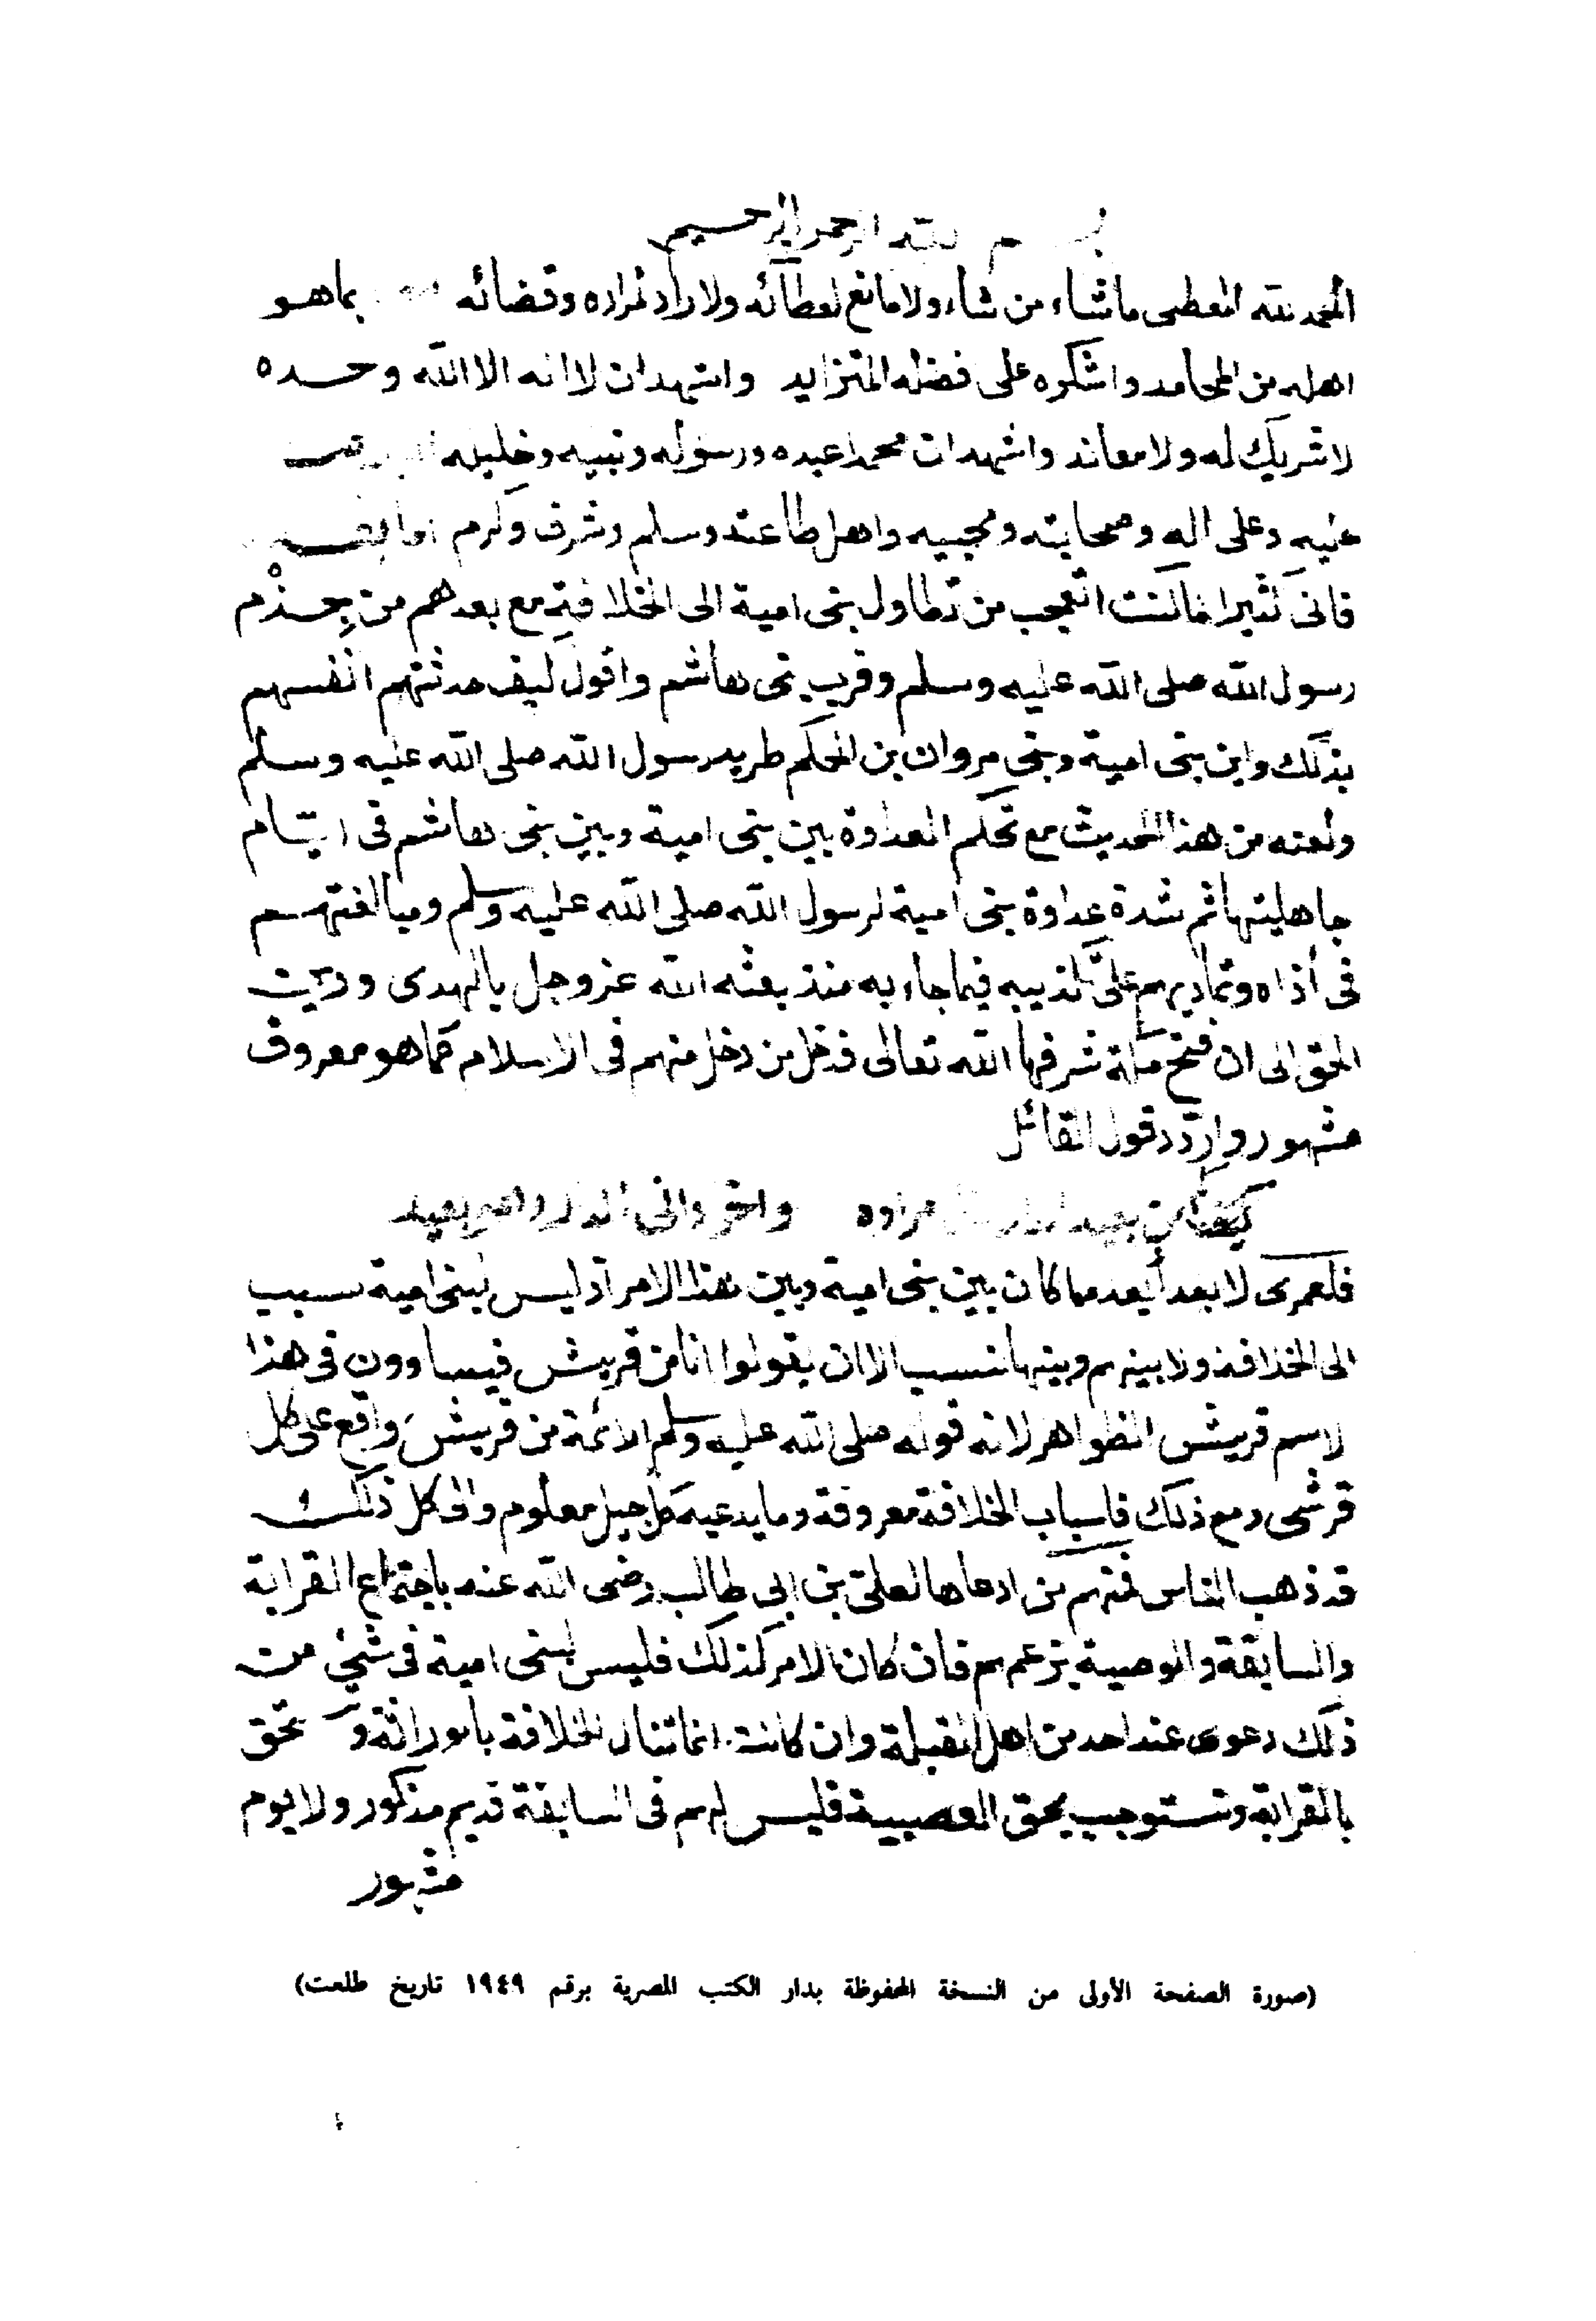 بسم الله الرحمن الرحيم
الحمد لله المعطى ماشاء من شاء ولا مانع لعطائه ولا راد لمراده وقضائه بماهو
اهله من المحامد واشكره على فضله المتزايد واشهد ان لا اله الا الله وحده
لا شريك له ولا معاند واشهد ان محمدا عبده ورسوله ونبيه وخليله
عليه وعلى اله وصحابته ومحبيه واهل طاعته وسلم وشرف وكرم اما بعد
فانى كثيرا ما كنت اتعجب من تطاول بنى امية الى الخلافة مع بعدهم من جِذْم
رسول الله صلى الله عليه وسلم وقرب بنى هاشم واقول كيف حدثتهم انفسهم
بذلك واين بنى امية وبنى مروان بن الحكم طريد رسول الله صلى الله عليه وسلم
ولعنه من هذا الحديث مع تحكم العداوة بين بنى امية وبين بنى هاشم فى ايام
جاهليتها ثم شدة عداوة بنى امية لرسول الله صلى الله عليه وسلم ومبالغتهم
فى أذاه وتماديهم على تكذيبه فيما جاء به منذ بعثه الله عز وجل بالهدى ودين
الحق الى ان فتح مكة شرفها الله تعالى فدخل من دخل منهم فى الاسلام كما هو معروف
مشهور واردّد قول القائل
كم من بعيد الدار مراده واخر دانى الدار وهو بعيد
فلعمرى لا بعد أبعد مما كان بين بنى امية وبين هذا الامر اذ ليس لبنى امية سبب
الى الخلافة ولا بينهم وبينها نسب الا ان يقولوا انا من قريش فيساوون فى هذا
لاسم قريش الظواهر لانه قوله صلى الله عليه وسلم الائمة من قريش واقع على كل
قرشى ومع ذلك فاسباب الخلافة معروفة وما يدعيه كل جيل معلوم والى كل ذلك
قد ذهب الناس فمنهم من ادعاها لعلى بن ابى طالب رضى الله عنه باجتماع القرابة
والسابقة والوصية بزعمهم فان كان الامر كذلك فليس لبنى امية فى شئ من
ذلك دعوى عند احد من اهل القبلة وان كانت انما تنال الخلافة بالوراثة و تحق
بالقرابة وتستوجب بحق العصبية فليس لهم فى السابقة قديم مذكور ولا يوم
مشهور
(صورة الصفحة الأولى من النسخة المحفوظة بدار الكتب المصرية برقم ١٩٤٩ تاريخ طلعت)